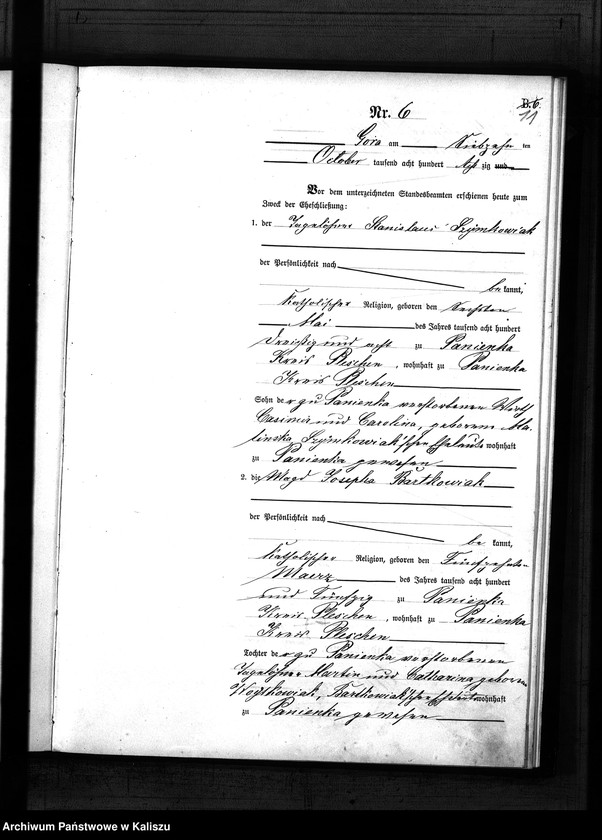 B. 6.
11
Nr. 6
Góra am Siebzehn ten
October tausend acht hundert Acht zig und
Vor dem unterzeichneten Standesbeamten erschienen heute zum
Zweck der Eheschließung:
1. der Tagelöhner Stanislaus Szymkowiak
der Persönlichkeit nach
be kannt,
katholischer Religion, geboren den Sechsten
Mai des Jahres tausend acht hundert
dreißig und acht zu Panienka
Kreis Pleschen, wohnhaft zu Panienka
Kreis Pleschen
Sohn der zu Panienka verstorbenen Wirth
Casimir und Carolina, geborene Ma-
linska Szymkowiak'schen Eheleute wohnhaft
zu Panienka gewesen
2. die Magd Josepha Bartkowiak
der Persönlichkeit nach
be kannt,
katholischer Religion, geboren den Fünfzehnten
Maerz des Jahres tausend acht hundert
und Fünfzig zu Panienka
Kreis Pleschen, wohnhaft zu Panienka
Kreis Pleschen
Tochter der zu Panienka verstorbenen
Tagelöhner Martin und Catharina geboren
Woytkowiak, Bartkowiak'schen Eheleute wohnhaft
zu Panienka gewesen
Archiwum Państwowe w Kaliszu